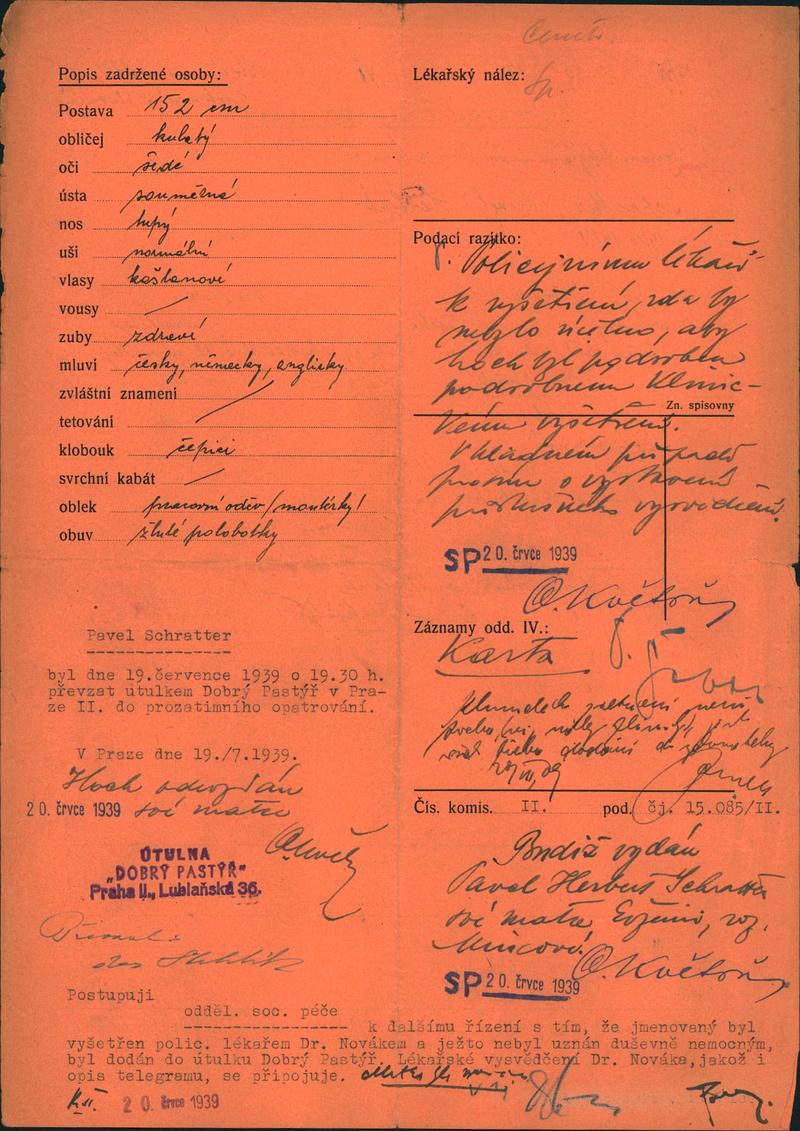 Popis zadržené osoby:
Postava 152 cm
obličej kulatý
oči šedé
ústa souměrná
nos tupý
uši normální
vlasy kaštanové
vousy
zuby zdravé
mluví česky, německy, anglicky
zvláštní znamení
tetování
klobouk čepici
svrchní kabát
oblek pracovní oděv/montérky/
obuv žluté polobotky
Pavel Schratter
byl dne 19.července 1939 o 19.30 h.
převzat útulkem Dobrý Pastýř v Pra-
ze II. do prozatimního opatrování.
V Praze dne 19./7.1939.
Hoch odevzdán
20. črvce 1939 své matce
ÚTULNA
„DOBRÝ PASTÝŘ"
Praha II., Lublaňská 36.
Lékařský nález:
Podací razítko:
Policejnímu lékaři
k vyšetření, zda by
nebylo účelno, aby
hoch byl podroben
podrobnému klinic-
kému vyšetření.
V kladném případě
prosím o vystavení
příslušného vysvědčení.
Zn. spisovny
SP 20. črvce 1939
O. Květoň
Záznamy odd. IV.:
Karta
Čís. komis. II. pod. čj. 15.085/II.
Budiž vydán
Pavel Herbert Schratter
své matce Evženii, roz.
Mincové.
O. Květoň
SP 20. črvce 1939
Postupuji
odděl. soc. péče
k dalšímu řízení s tím, že jmenovaný byl
vyšetřen polic. lékařem Dr. Novákem a ježto nebyl uznán duševně nemocným,
byl dodán do útulku Dobrý Pastýř. Lékařské vysvědčení Dr. Nováka,jakož i
opis telegramu, se připojuje.
20. črvce 1939